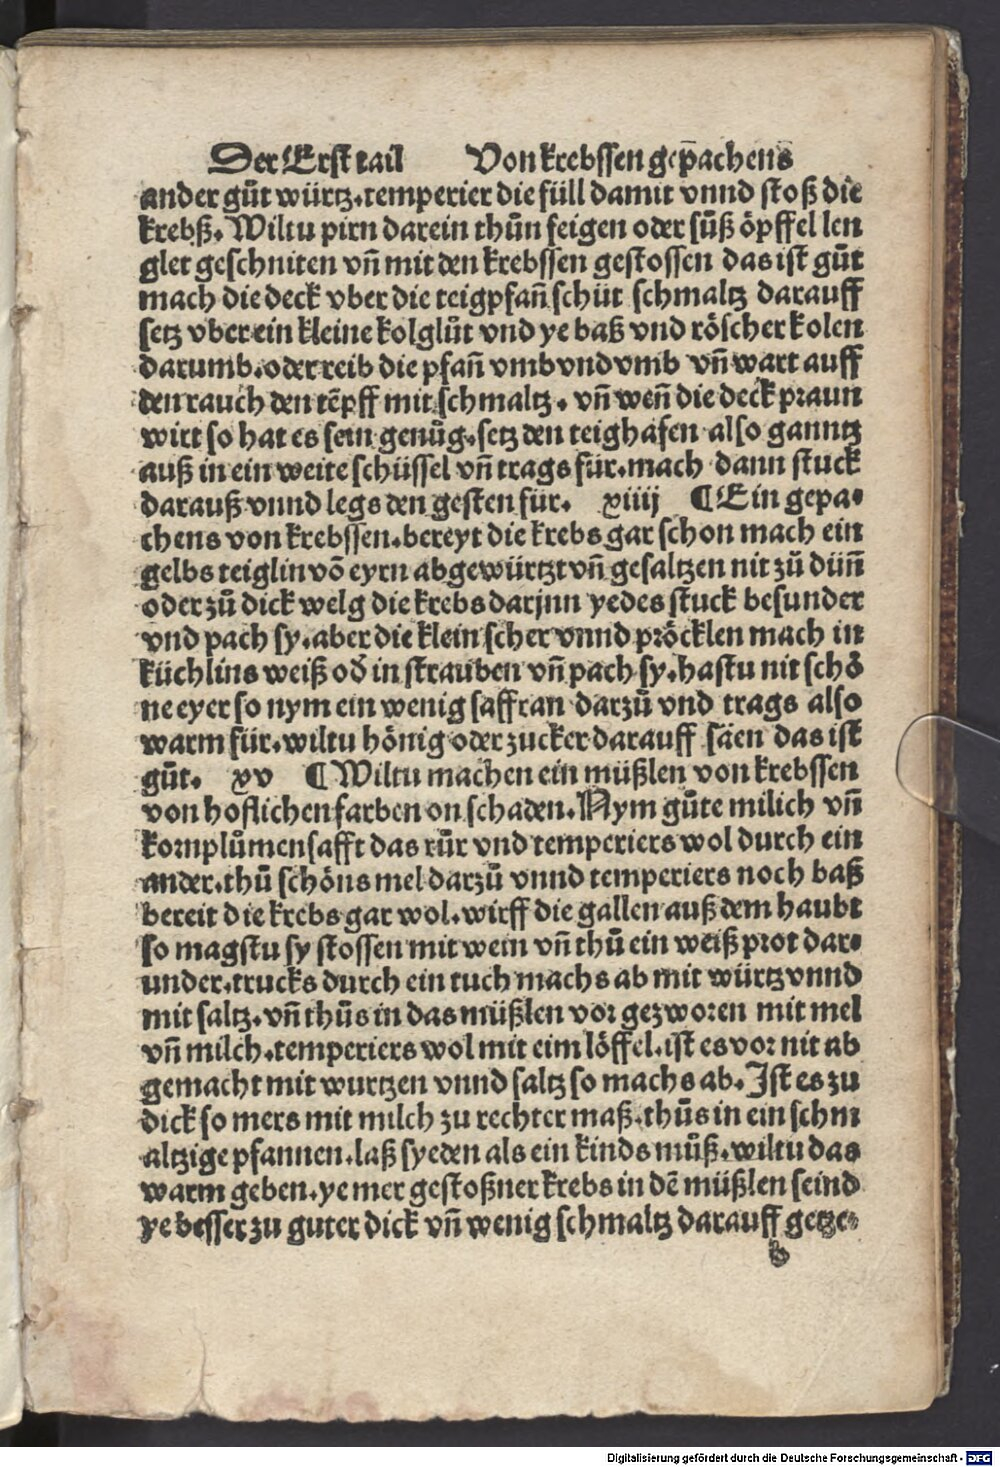 Der Erst tail Von krebssen gepachens
ander gůt würtz. temperier die füll damit vnnd stoß die
krebß. Wiltu pirn darein thůn feigen oder sůß öpffel len
glet geschniten vn̄ mit den krebssen gestossen das ist gůt
mach die deck vber die teigpfan̄ schüt schmaltz darauff
setz vber ein kleine kolglůt vnd ye baß vnd röscher kolen
darumb. oder reib die pfan̄ vmb vnd vmb vn̄ wart auff
den rauch den tēpff mit schmaltz. vn̄ wen̄ die deck praun
wirt so hat es sein genůg. setz den teighafen also ganntz
auß in ein weite schüssel vn̄ trags für. mach dann stuck
darauß vnnd legs den gesten für. xiiij ¶ Ein gepa⸗
chens von krebssen. bereyt die krebs gar schon mach ein
gelbs teiglin vō eyrn abgewürtzt vn̄ gesaltzen nit zů dün̄
oder zů dick welg die krebs darjnn yedes stuck besunder
vnd pach sy. aber die klein scher vnnd pröcklen mach in
küchlins weiß od̄ in strauben vn̄ pach sy. hastu nit schö
ne eyer so nym ein wenig saffran darzů vnd trags also
warm für. wiltu hönig oder zucker darauff säen das ist
gůt. xv ¶ Wiltu machen ein müßlen von krebssen
von hoflichen farben on schaden. Nym gůte milich vn̄
kornplůmen safft das růr vnd temperiers wol durch ein
ander. thů schöns mel darzů vnnd temperiers noch baß
bereit die krebs gar wol. wirff die gallen auß dem haubt
so magstu sy stossen mit wein vn̄ thů ein weiß prot dar⸗
under. trucks durch ein tuch machs ab mit würtz vnnd
mit saltz. vn̄ thůs in das müßlen vor gezworen mit mel
vn̄ milch. temperiers wol mit eim löffel. ist es vor nit ab
gemacht mit wurtzen vnnd saltz so machs ab. Jst es zu
dick so mers mit milch zu rechter maß. thůs in ein schm
altzige pfannen. laß syeden als ein kinds můß. wiltu das
warm geben. ye mer gestoßner krebs in dē müßlen seind
ye besser zu guter dick vn̄ wenig schmaltz darauff getze⸗
b
Digitalisierung gefördert durch die Deutsche Forschungsgemeinschaft - DFG